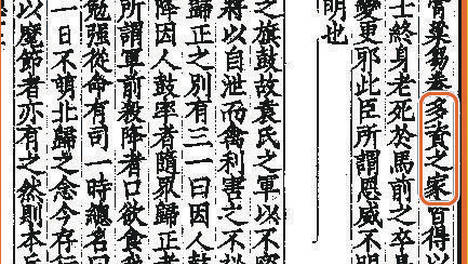 膏粱芻豢多資之家皆得以
士終身老死於馬前之卒是
變更耶此臣所謂恩威不明
明也
之旗鼓故袁氏之軍以不寤
將以自泄而禽利害之不
歸正之別有三一曰因人
降因人鼓率者隨眾歸正者
所謂軍前殺降者口欲食
勉强從命有司一時總名曰
一日不萌北歸之念今存
以魔節者亦有之然則本